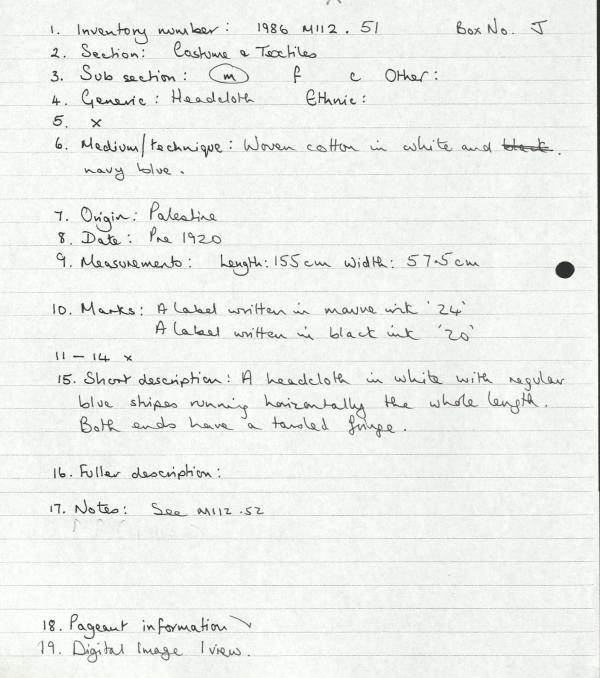 1. Inventory number: 1986 M112.51 Box No. J
2. Section: Costume & Textiles
3. Sub section: m f c Other:
4. Generic: Headcloth Ethnic:
5. x
6. Medium/technique: Woven cotton in white and black.
navy blue.
7. Origin: Palestine
8. Date: Pre 1920
9. Measurements: Length: 155cm Width: 57.5cm
10. Marks: A label written in mauve ink '24'
A label written in black ink '20'
11 - 14 x
15. Short description: A headcloth in white with regular
blue stripes running horizontally the whole length.
Both ends have a tassled fringe.
16. Fuller description:
17. Notes: See M112.52
18. Pageant information
19. Digital Image 1 view.